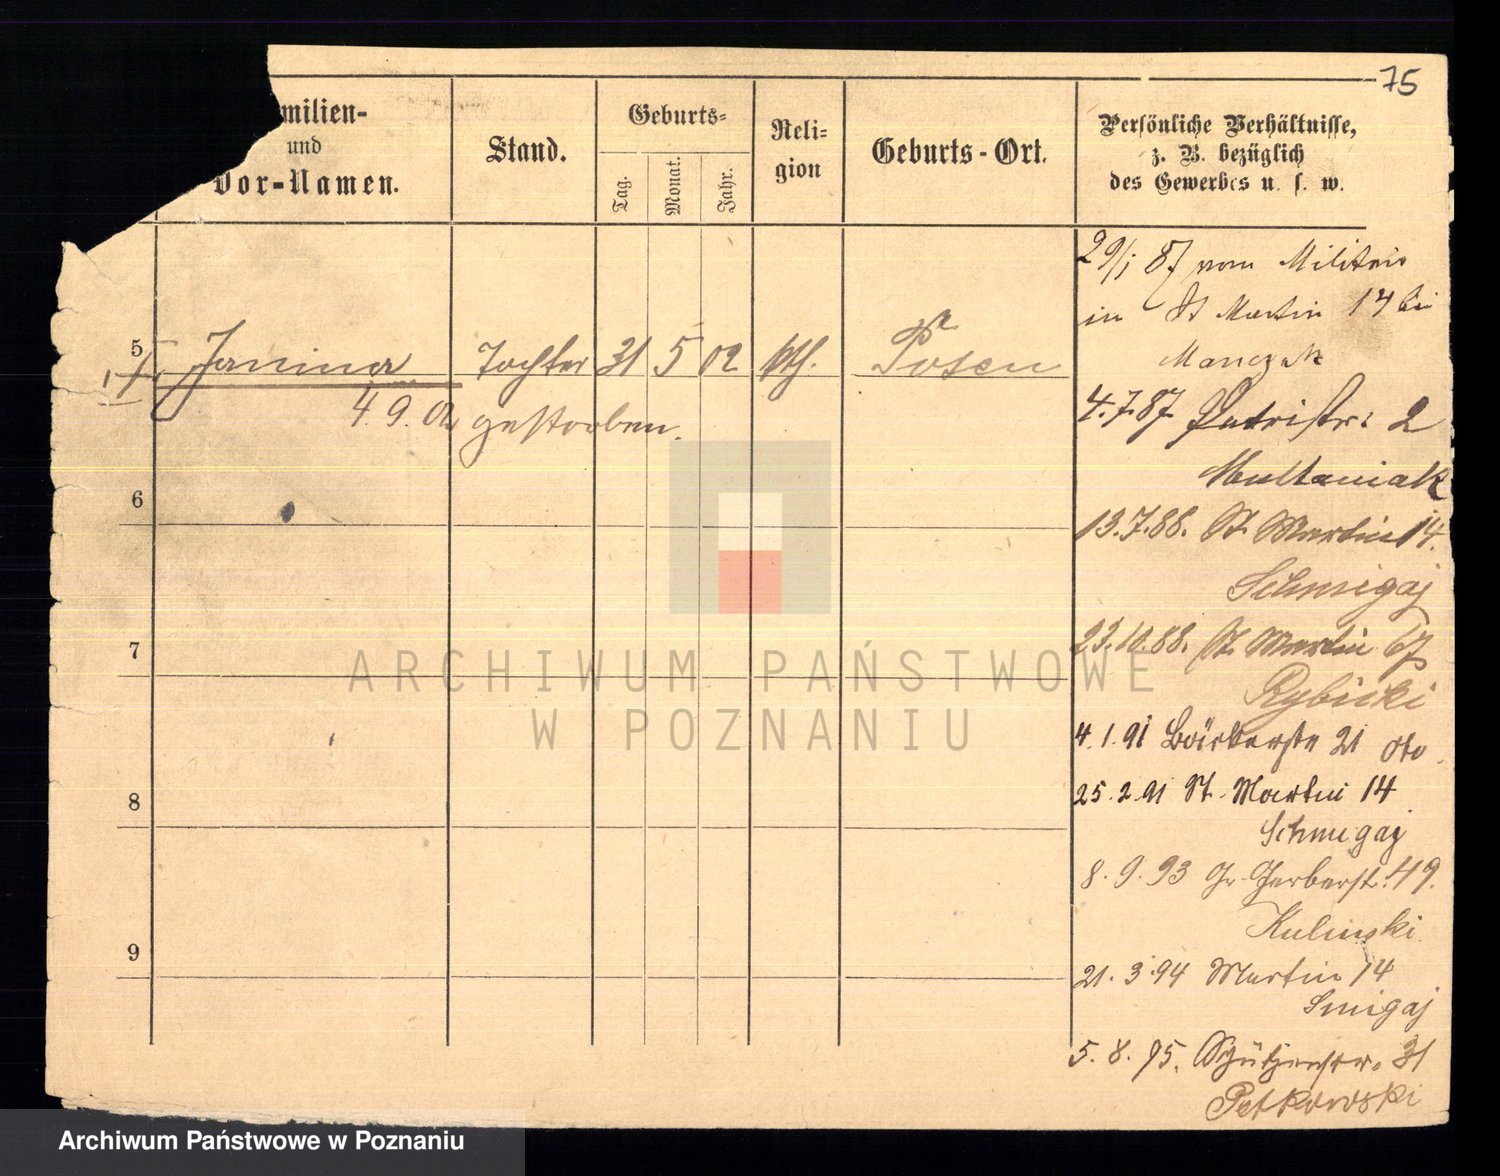 75
milien-
und
Vor-Namen.
Stand.
Geburts-
Tag.
Monat.
Jahr.
Reli-
gion
Geburts-Ort.
Persönliche Verhältnisse,
z. B. bezüglich
des Gewerbes u. s. w.
5
Janina Tochter 31 5 02 kth. Posen
4.9.02 gestorben.
6
7
8
9
29/1 87 vom Militair
in St Martin 14 bei
Manczak
4.7.87 2
Multaniak
13.7.88. St. Martin 14.
Schmigaj
23.10.88. St. Martin 67
Rybicki
4.1.91 Bäckerstr 21 Otto
25.2.91 St. Martin 14
Schmigaj
8.9.93 Gr. Gerberst. 49.
Kulinski
21.3.94 Martin 14
Smigaj
5.8.95. Schützenstr. 31
Petkowski
ARCHIWUM PAŃSTWOWE
W POZNANIU
Archiwum Państwowe w Poznaniu